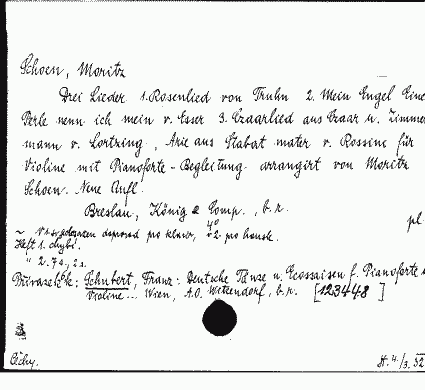 Schoen, Moritz
Drei Lieder 1. Rosenlied von Truhn 2. Mein Engel Eine
Perle nenn ich mein v. Esser 3. Czaarlied aus Czaar u. Zimmer
mann v. Lortzing, Arie aus Stabat mater v. Rossini für
Violine mit Pianoforte-Begleitung arrangirt von Moritz
Schoen. Neue Aufl.
Breslau, König & Comp., b.r.
4°
pl.
po klaw., +2 po housle.
Heft 1. chybí.
" 2. 7 s., 2 s.
Přívazek k: Schubert, Franz: Deutsche Tänze u. Ecossaisen f. Pianoforte u
Violine... Wien, A.O. Witzendorf, b.r. [123448]
Čichy.
4./3. 52